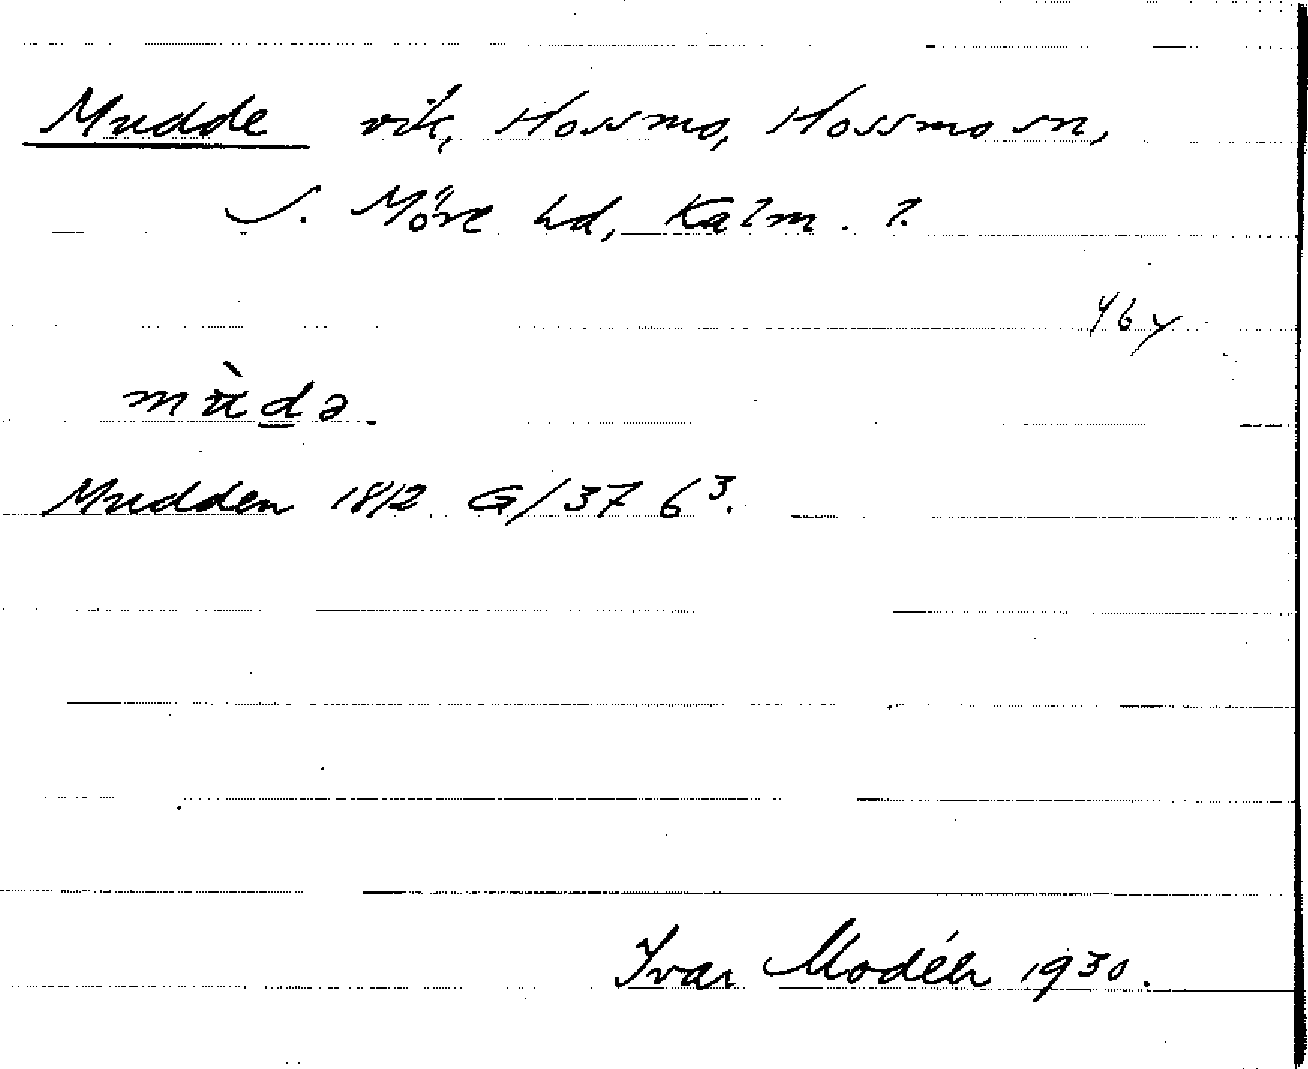 Mudde vik, Hossmo, Hossmo sn,
S. Möre hd, Kalm. l.
4by
mùdə.
Mudden 1812 G/37 6³.
Ivar Modéer 1930.